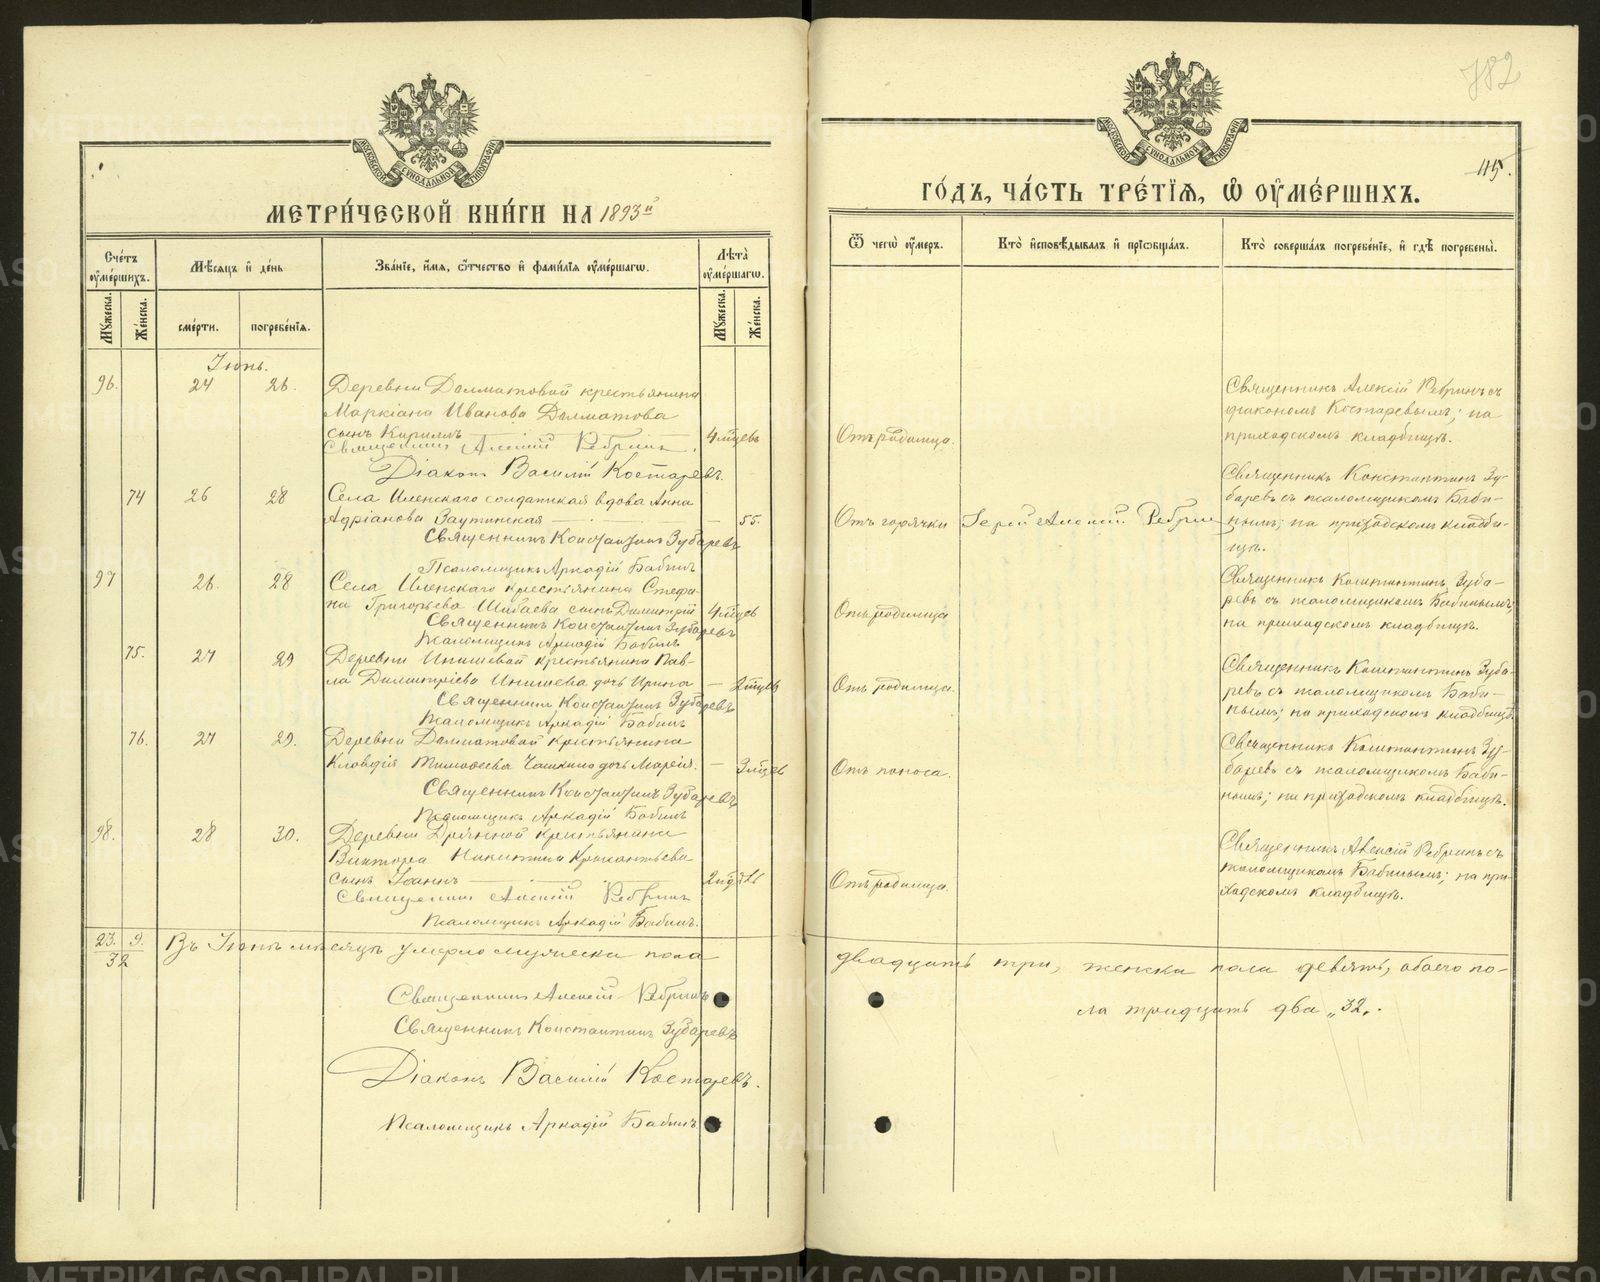 782
115.
МЕТРИ́ЧЕСКОЙ КНИ́ГИ НА 1893й
ГО́ДЪ, ЧА́СТЬ ТРЕ́ТІѦ, Ѿ ОУМЕ́РШИХЪ.
Сче́тъ оуме́ршихъ.
Мꙋ́жеска.
Же́нска.
Мѣ́сяцъ и де́нь
сме́рти.
погребе́нїѧ.
Зва́нїе, и́мѧ, ѻ҆́тчество и фами́лїѧ оуме́ршагѡ.
Лѣ́та оуме́ршагѡ.
Мꙋ́жеска.
Же́нска.
Ѿ чегѡ̀ оу́меръ.
Кто̀ и҆сповѣ́дывалъ и҆ прїѡбща́лъ.
Кто̀ соверша́лъ погребе́нїе, и҆ гдѣ̀ погребены̀.
Іюнь.
96. 24 26. Деревни Долматовой крестьянина
Маркіана Иванова Долматова
сынъ Кириллъ 4 мцевъ Отъ родимца.
Священникъ Алексій Ребринъ.
Діаконъ Василій Костаревъ.
Священникъ Алексій Ребринъ съ
діакономъ Костаревымъ; на
приходскомъ кладбищѣ.
74 26 28 Села Иленскаго солдатская вдова Анна
Адріанова Заутинская 55. Отъ горячки Іерей Алексій Ребринъ
Священникъ Константинъ Зубаревъ
Псаломщикъ Аркадій Бабинъ
Священникъ Константинъ Зу-
баревъ съ псаломщикомъ Баби-
нымъ; на приходскомъ кладби-
щѣ.
97 26. 28 Села Иленскаго крестьянина Стефа-
на Григорьева Шибаева сынъ Димитрій 4 мцев Отъ родимца
Священникъ Константинъ Зубаревъ
Псаломщикъ Аркадій Бабинъ
Священникъ Константинъ Зуба-
ревъ съ псаломщикомъ Бабинымъ;
на приходскомъ кладбищѣ.
75. 27 29 Деревни Инишевой крестьянина Пав-
ла Димитріева Инишева дочь Ирина 2 мцевъ Отъ родимца.
Священникъ Константинъ Зубаревъ
Псаломщикъ Аркадій Бабинъ
Священникъ Константинъ Зуба-
ревъ съ псаломщикомъ Баби-
нымъ; на приходскомъ кладбищѣ.
76. 27 29. Деревни Долматовой крестьянина
Клавдія Тимофеева Чашкина дочь Марія. 3 мцев Отъ поноса.
Священникъ Константинъ Зубаревъ
Псаломщикъ Аркадій Бабинъ
Священникъ Константинъ Зу-
баревъ съ псаломщикомъ Баби-
нымъ; на приходскомъ кладбищѣ.
98. 28 30. Деревни Дрянной крестьянина
Виктора Никитина
сынъ Іоаннъ Отъ родимца.
Священникъ Алексій Ребринъ
Псаломщикъ Аркадій Бабинъ.
Священникъ Алексій Ребринъ съ
псаломщикомъ Бабинымъ; на при-
ходскомъ кладбищѣ.
23. 9.
32
Въ Іюнѣ мѣсяцѣ умерло мужеска пола двадцать три, женска пола девять, обоего по-
ла тридцать два „32„.
Священникъ Алексій Ребринъ
Священникъ Константинъ Зубаревъ
Діаконъ Василій Костаревъ.
Псаломщикъ Аркадій Бабинъ
METRIKI.GASO-URAL.RU